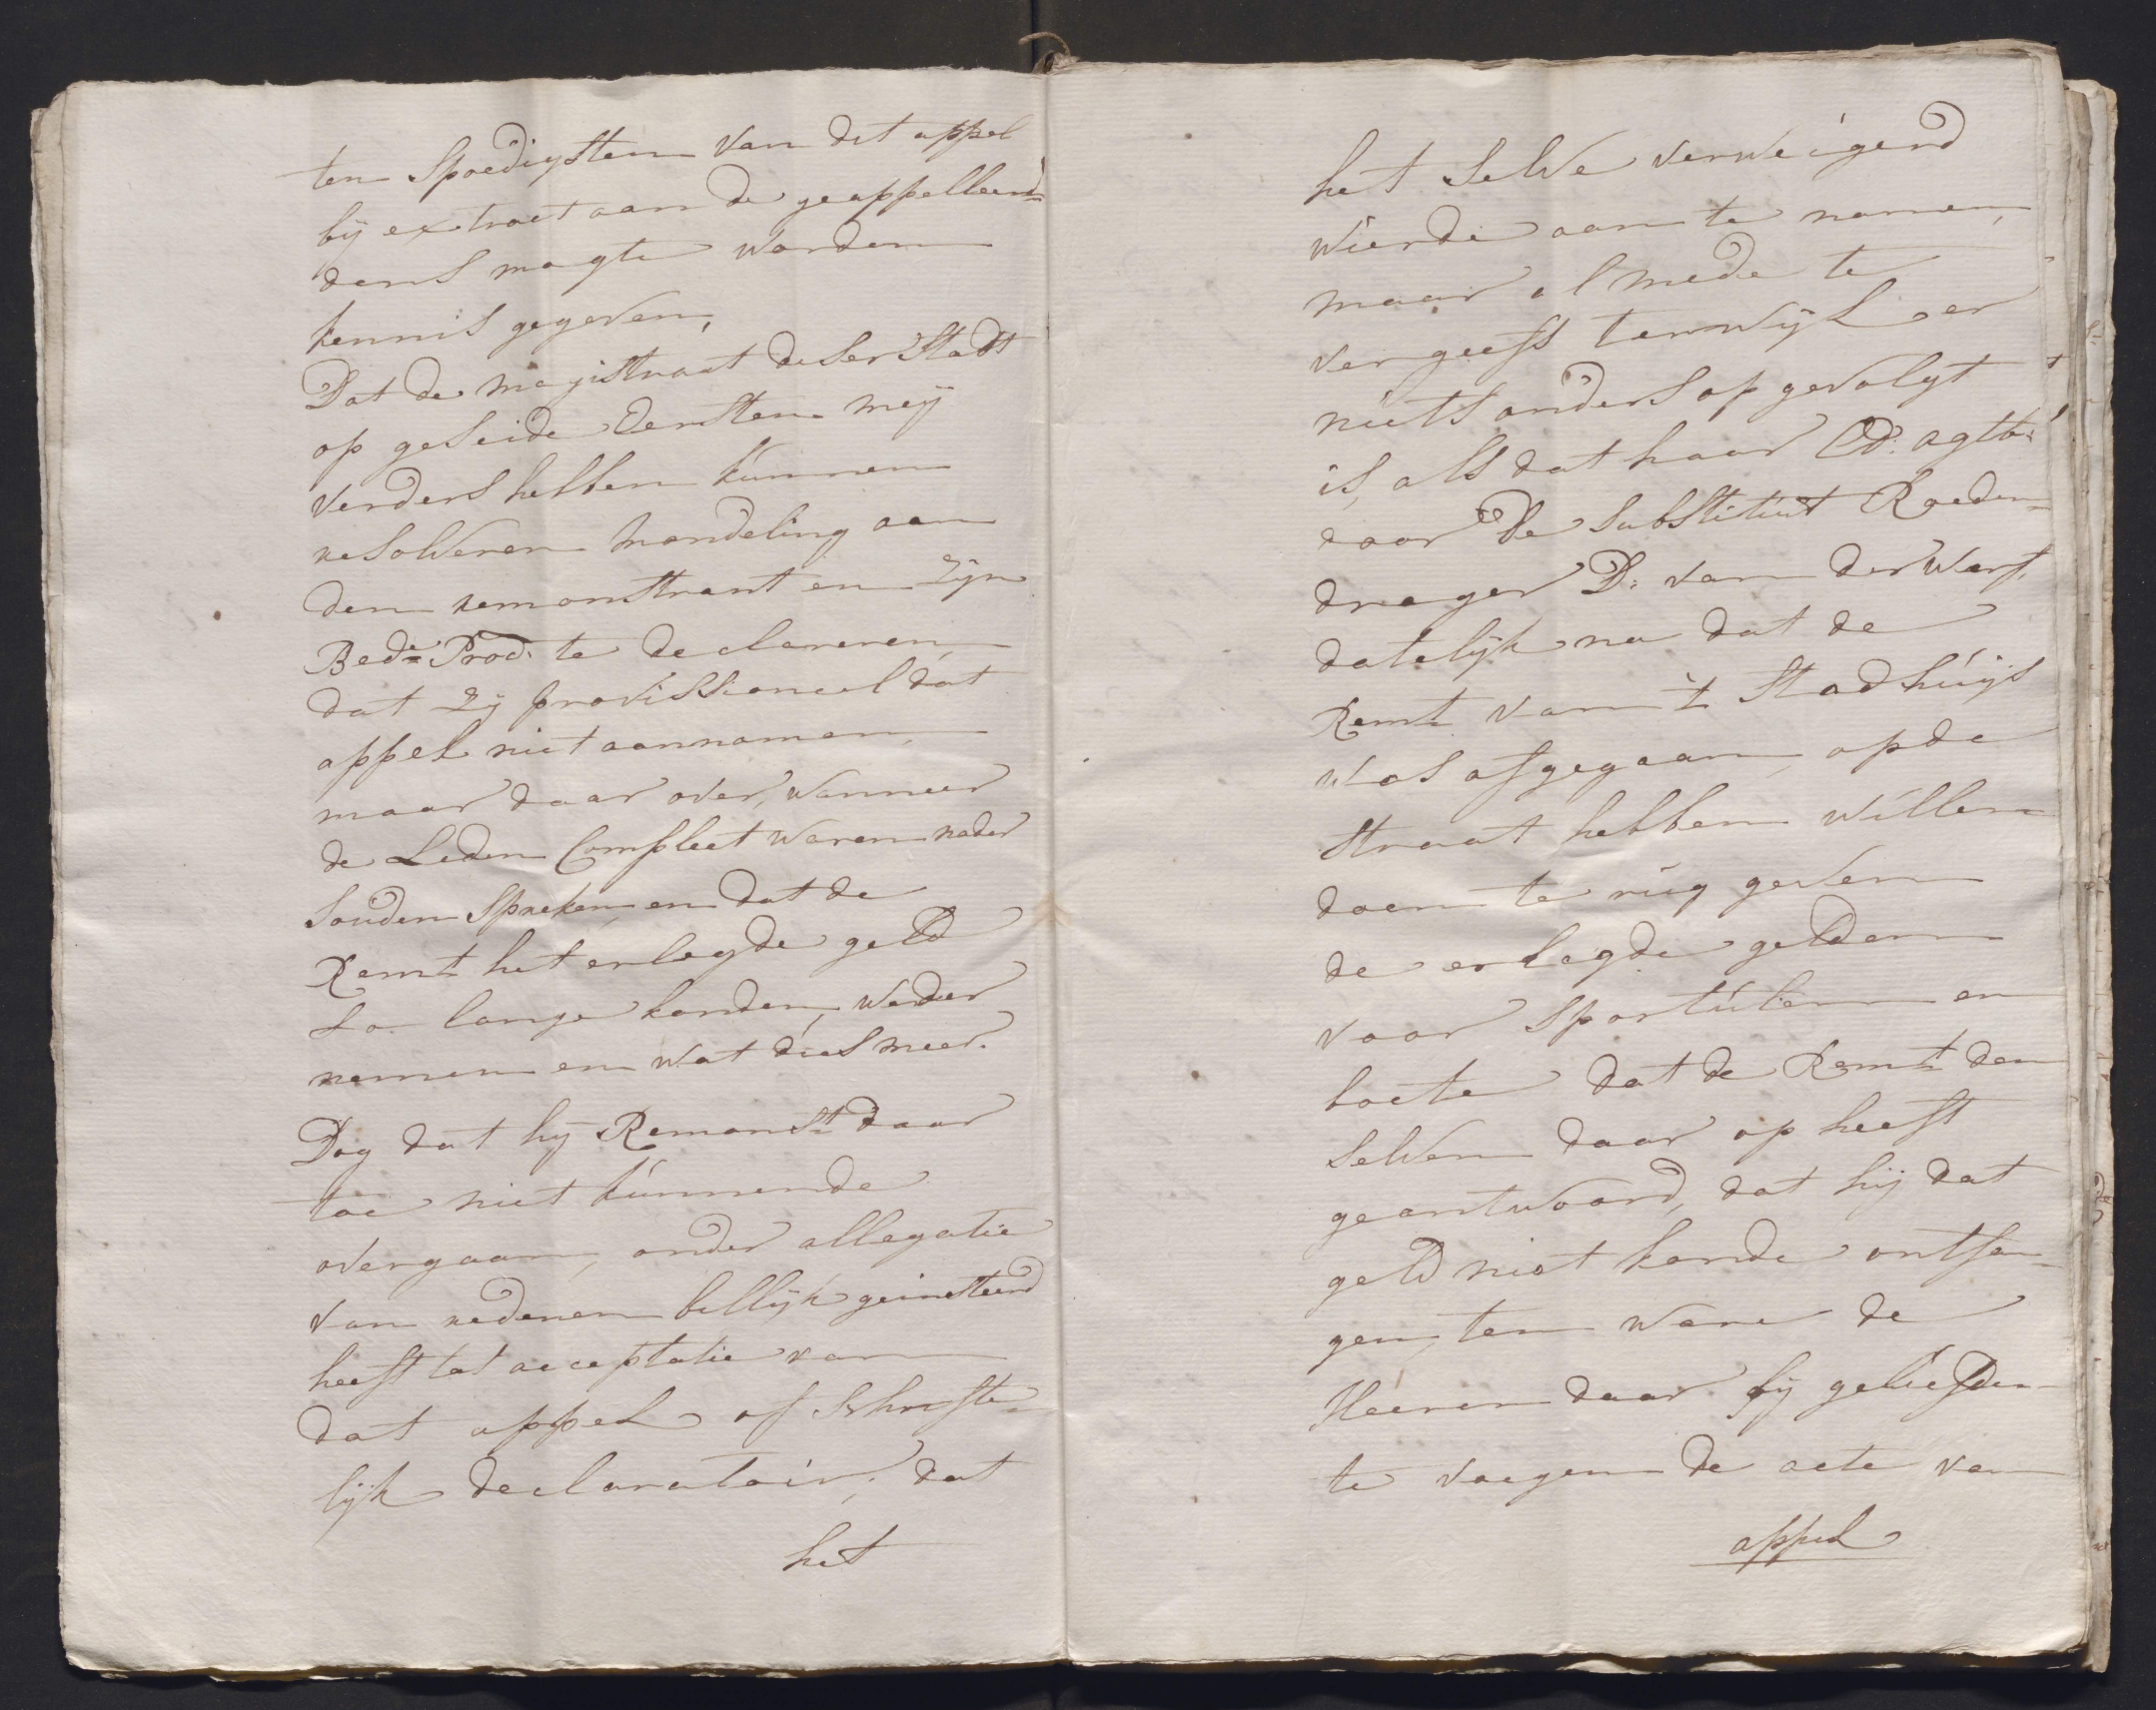 ten Spoedigsten van dit appel
bij extract aan de geappelleer=
dens magte worden
kennis gegeven,
Dat de magistraat deser Stadt
op geseide Eersten meij
verders hebben kunnen
resolveren mondeling aan
den remonstrant en Zijn
Bed:e Proc: te declareren,
dat Zij provissioneel dat
appel niet aannamen,
maar daar over, wanneer
de Leden Compleet waren nader
Souden Spreken, en dat de
Remt het erlegde geld
So lange konden, weder
nemen en wat dies meer.
Dog dat hij Remonst daar
toe niet kunnende
overgaan, onder allegatie
van redenen billijk geinsteerd
heeft tot acceptatie van
dat appel of Schrifte=
lijk declaratoir, dat
het
het Selve verweigerd
wierde aan te nomen,
maar al mede te
vergeefs terwijl er
niets anders op gevolgt
is, als dat haar Ed: agtb:
door de Substituut Roeden=
drager D: van der Werf,
datelijk na dat de
Remt van 't Stadhuijs
was afgegaan, op de
Straat hebben willen
doen te rug geven
de erlegde gelden
voor Sportulen en
boete dat de Remt den
Selven daar op heeft
geantwoord, dat hij dat
geld niet konde ontfan=
gen, ten ware de
Heeren daar bij geliefden
te voegen de acte van
appel